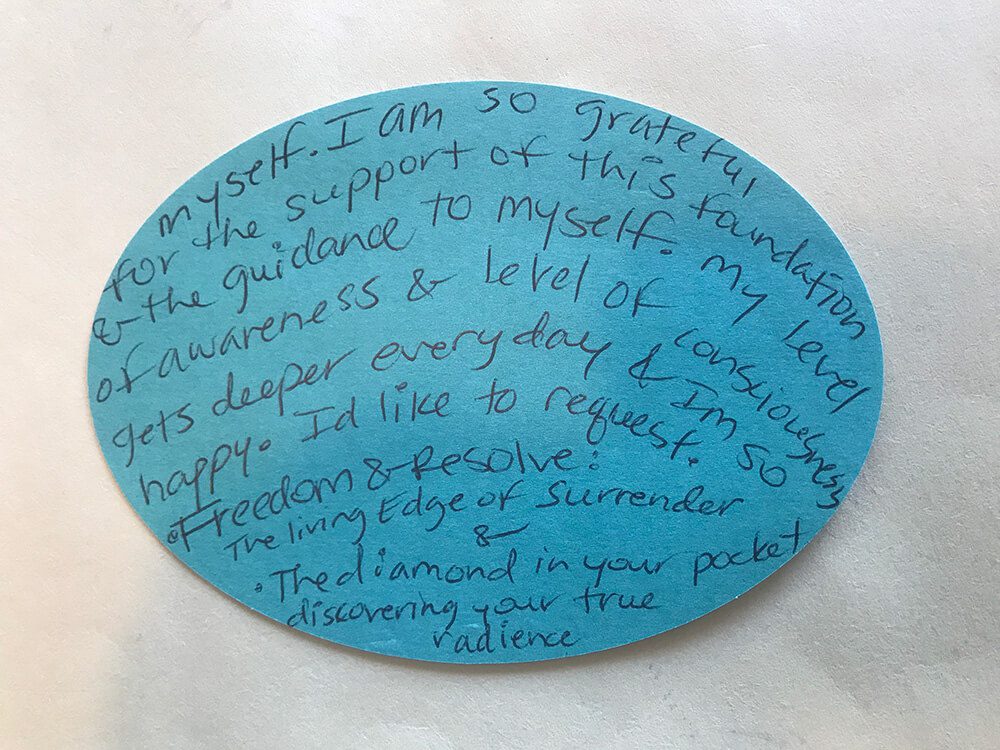 myself. I am so grateful
for the support of this foundation
& the guidance to myself. My level
of awareness & level of consciousness
gets deeper every day & Im so
happy. Id like to request.
• Freedom & Resolve:
The living Edge of Surrender
&
• The diamond in your pocket
discovering your true
radience